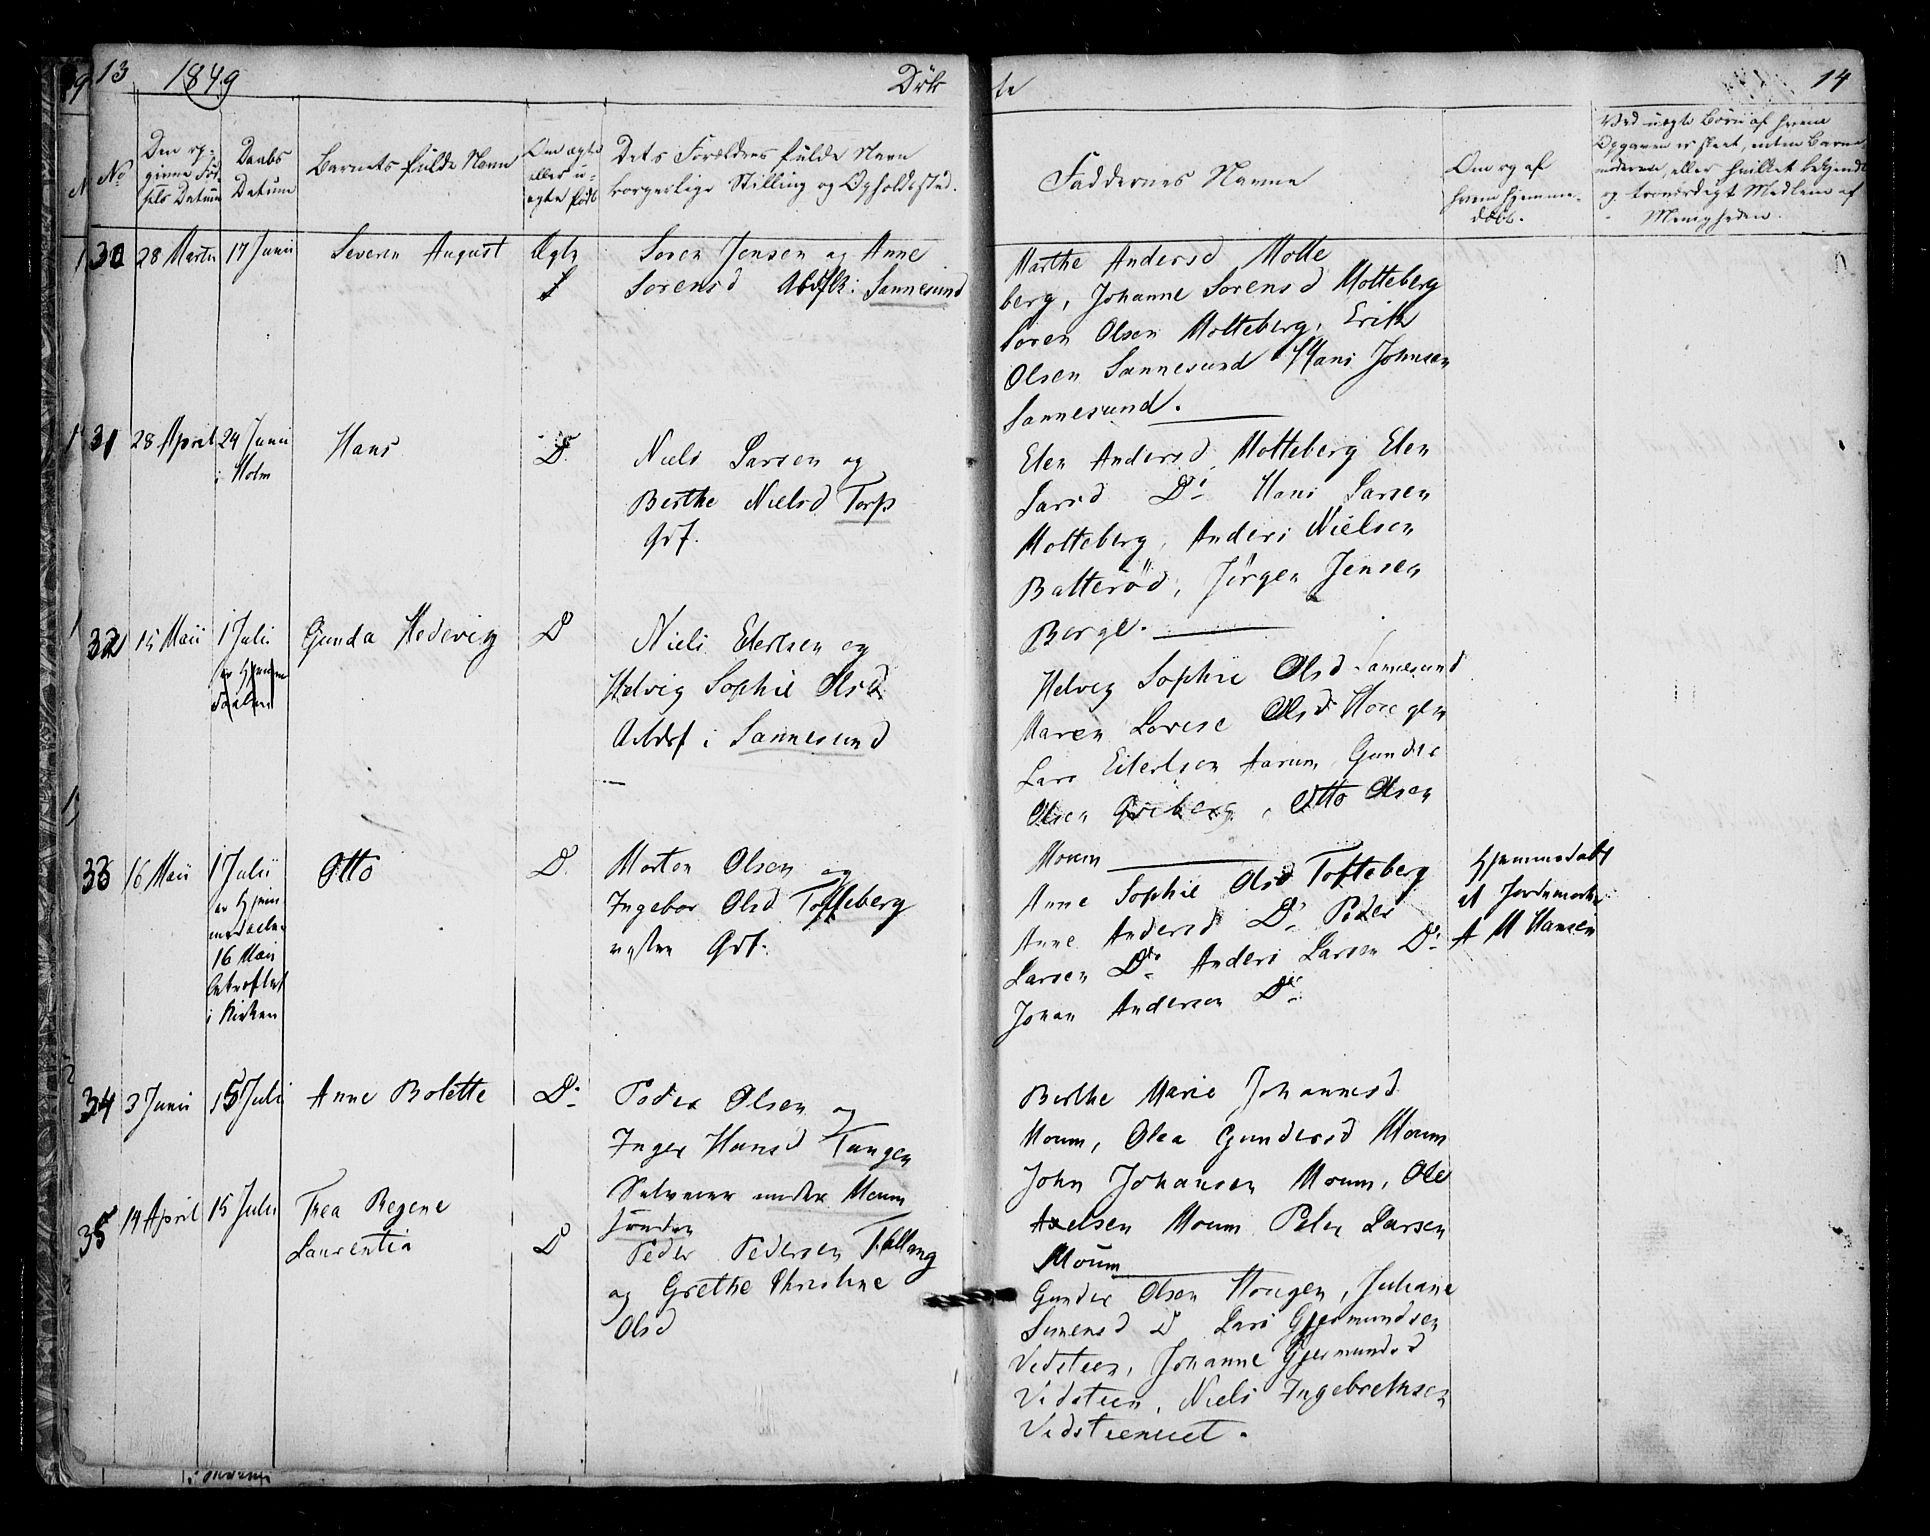 13 1849 Døb
te 14
No
Den op-
givne Fød-
sels Datum
Daabs
Datum
Barnets fulde Navn
Om ægte
eller u-
ægte født
Dets Forældres fulde Navn
borgerlige Stilling og Opholdssted.
Faddernes Navne
Om og af
hvem hjemme-
døbt.
Ved uægte Børn af hvem
Opgaven er skeet, enten Barne-
moderen, eller hvilket bekjendt
og troværdigt Medlem af
Menigheden.
30 28 Marts 17 Junii Severin August Ægte
Soren Jensen og Anne
Sorensd Sannesund
Marthe Andersd Molte
berg, Johanne Sorensd Molteberg
Soren Olsen Molteberg, Erik
Olsen Sannesund Hans Johnsen
Sannesund.
31 28 April 24 Junii
i Holm
Hans D.
Niels Larsen og
Berthe Nielsd Torp
Grf.
Elen Andersd Molteberg Elen
Larsd Do Hans Larsen
Molteberg, Anders Nielsen
Batterød, Jørgen Jensen
Berge.
32 15 Maii 1 Julii Gunda Hedevig D
Niels Eilertsen og
Helvig Sophie Olsd
i Sannesund
Helvig Sophie Olsd Sannesund
Maren Lovise Olsd Hougen
Lars Eilertsen Aarum, Gunder
Olsen Greberg, Otto Olsen
Moum
33 16 Maii 1 Julii
er hjem
medøbt
16 Maii
bekræftet
i Kirken
Otto D.
Morten Olsen og
Ingebor Olsd Tofteberg
østre Grf.
Anne Sophie Olsd Tofteberg
Anne Andersd Do Peder
Larsen Do Anders Larsen Do
Johan Andersen Do
Hjemmedøbt
af Jordemoder
A M Hansen
34 3 Junii 15 Juli Anne Bolette Do
Peder Olsen og
Inger Hansd Tangen
Selveier under Moum
søndre
Berthe Marie Johannesd
Moum, Olea Gundersd Moum
John Johansen Moum, Ole
Axelsen Moum Peter Larsen
Moum
35 14 April 15 Julii Thea Regene
Laurentia D
Peder Pedersen
og Grethe Christine
Olsd
Gunder Olsen Hougen, Juliane
Simensd D Lars Gjermundsen
Vedsteen, Johanne Gjermundsd
Vidsteen, Niels Ingebrethsen